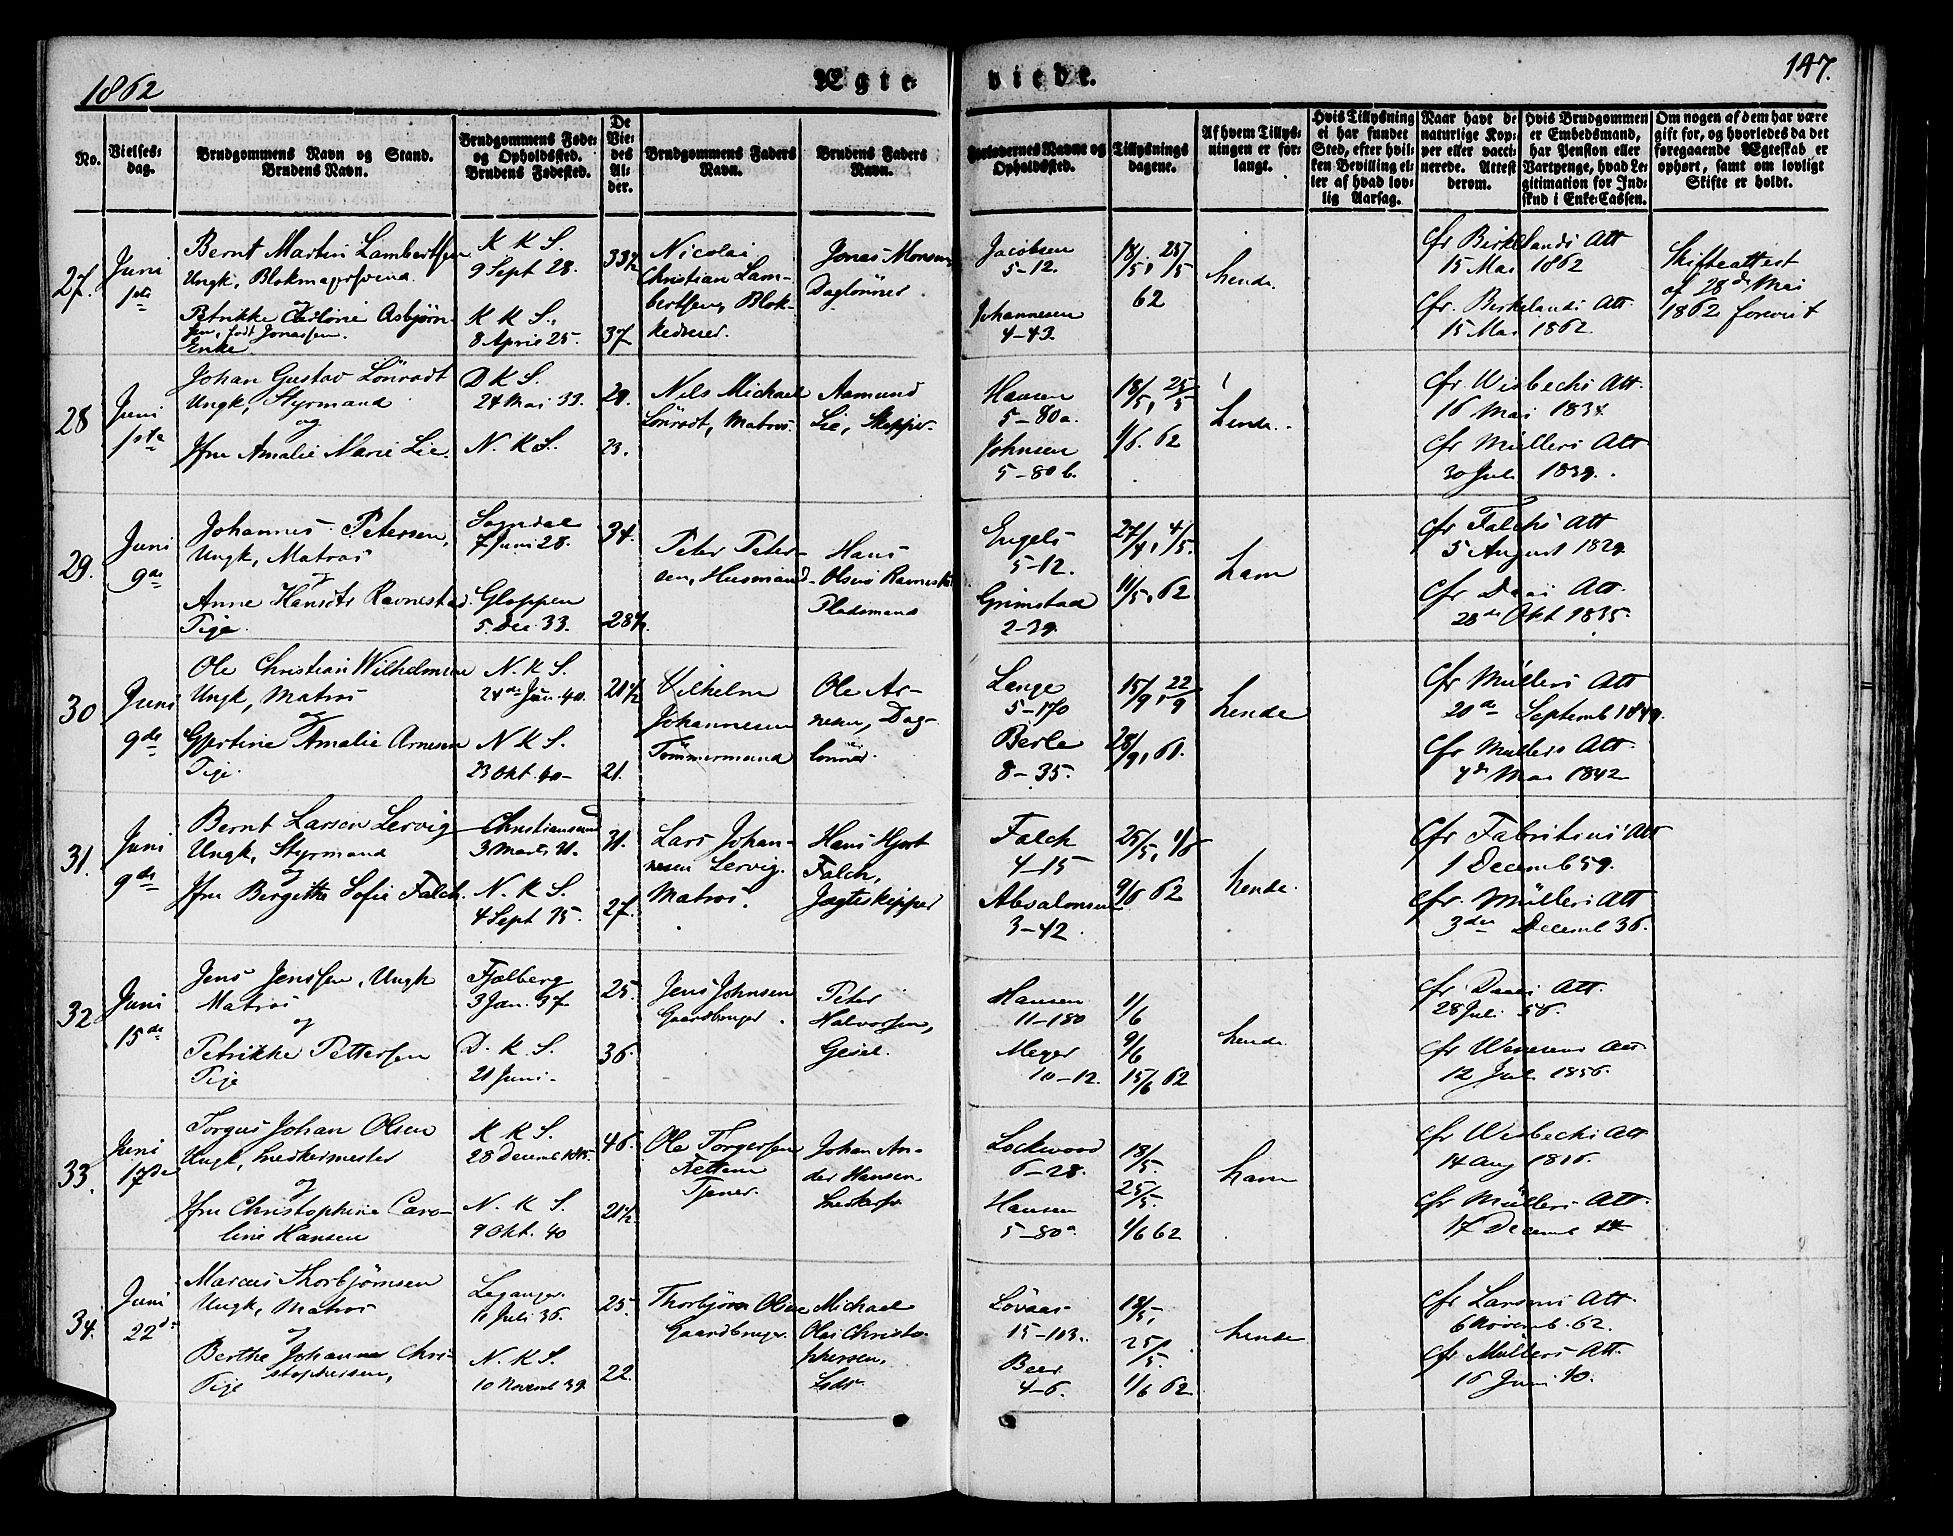 1862
Ægte
viede.
147.
No.
Vielses-
dag.
Brudgommens Navn og Stand.
Brudens Navn.
Brudgommens Føde-
og Opholdssted.
Brudens Fødested.
De
Vie-
des
Al-
der.
Brudgommens Faders
Navn.
Brudens Faders
Navn.
Forlovernes Navne og
Opholdssted.
Tillysnings
dagene.
Af hvem Tillys-
ningen er for-
langt.
Hvis Tillysning
ei har fundet
Sted, efter hvil-
ken Bevilling el-
ler af hvad lov-
lig Aarsag.
Naar havt de
naturlige Kop-
per eller vacci-
nerede. Attest
derom.
Hvis Brudgommen
er Embedsmand,
har Pension eller
Vartpenge, hvad Le-
gitimation for Ind-
skud i Enke-Cassen.
Om nogen af dem har være
gift før, og hvorledes da det
foregaaende Ægteskab er
ophørt, samt om lovligt
Skifte er holdt.
27.
Juni
1ste
Bernt Martin Lambertsen
Ungk, Blokmagersvend
og
Petrikke Asbjørn-
sen, født Jonassen.
Enke.
K K S.
9 Sept 28.
K K S.
8 April 25.
33½
37
Nicolai
Christian Lam-
bertsen, Blok-
Jonas Monsen,
Daglønner
Jacobsen
5-12.
Johannesen
4-43.
18/5, 25/5
62
hende.
cfr Birkelands Att
15 Mai 1862
cfr. Birkelands Att.
15 Mai 1862.
Skifteattest
af 28de Mai
1862 forevist
28
Juni
1ste
Johan Gustav Lönrodt
Ungk, Styrmand
og
Jfru Amalie Marie Lie.
D K S.
24 Mai 33.
N. K S.
29.
23.
Nils Michael
Lönrodt, Matros.
Aamund
Lie, Skipper.
Hansen
5-80a.
Johnsen
5-80b.
18/5, 25/5
1/6. 62
hende.
cfr Wisbechs Att.
16 Mai 1834
cfr Müllers Att
30 Juli 1839.
29.
Juni
9de
Johannes Petersen,
Ungk, Matros
og
Anne Hansdtr Ravnestad
Pige.
Sogndal
7 Juni 28.
Gloppen
5. Dec. 33.
34.
28½.
Peter Peter-
sen, Husmand
Hans
Olsen
Pladsmand
Engels
5-12.
Grimstad
2-39.
27/4, 4/5.
11/5, 62
ham
cfr Falchs Att
5 August 1829
cfr Daaes Att.
28de Okt 1835.
30
Juni
9de
Ole Christian Wilhelmsen
Ungk, Matros
og
Gjertine Amalie Arnesen
Pige.
N. K S.
24de Jan. 40.
N K S.
23 Okt. 40-
21½
21.
Vilhelm
Johannesen
Tømmermand
Ole Ar-
nesen, Dag-
lønner
Lange
5-170
Berle
8-35.
15/9, 22/9
28/9, 61.
hende
cfr Müllers Att
20de Septemb 1849.
cfr Müllers Att.
4de Mai 1842
31.
Juni
9de
Bernt Larsen Lervig
Ungk, Styrmand
og
Jfru Bergitte Sofie Falch.
Christiansund
3 Marts 31.
N. K S.
4 Sept 35.
31.
27.
Lars Johan-
nesen Lervig.
Matros.
Hans Hjort
Falch,
Jagteskipper
Falch
4-15
Absalonsen
3-42
25/5, 1/6
9/6 62
hende.
cfr Fabritius Att
1 Decemb 59.
cfr. Müllers Att
3den Decemb 36.
32
Juni
15de
Jens Jenssen, Ungk
Matros
og
Petrikke Pettersen
Pige
Fjelberg
3 Jan. 37
D. K. S.
21 Juni.
25.
36.
Jens Johnsen
Gaardbruger.
Peter
Halvorsen,
Gesel.
Hansen
11-180
Meyer
10-12.
1/6
9/6
15/6 62
hende
cfr Daaes Att.
28 Juli 56.
12 Juli 1856.
33.
Juni
17de
Torgus Johan Olsen
Ungk, Snedkermester
og
Jfru Christophine Caro-
line Hansen
K K S.
28 Decemb 1815.
N. K S.
9 Okt. 40
46.
21½
Ole Torgersen
Tjener.
Johan An-
der Hansen
Lockwood
6-28.
Hansen
5-80a
18/5.
25/5.
1/6 62
ham
cfr Wisbechs Att
14 Aug 1816.
cfr Müllers Att.
17 Decemb 44
34.
Juni
22de
Marcus Thorbjørnsen
Ungk, Matros
og
Berthe Johanne Chri-
stophersen,
Pige
Leganger
10 Juli 36.
N. K S.
10 Novemb 39
25.
22.
Thorbjørn Olsen
Gaardbruger.
Michael
Olai Christo-
phersen,
Lods.
Lövaas
15-103.
Beer
4-6.
18/5,
25/5.
1/6 62
hende
cfr Larsens Att.
6 Novemb. 62.
cfr Müllers Att.
16 Juni 40.